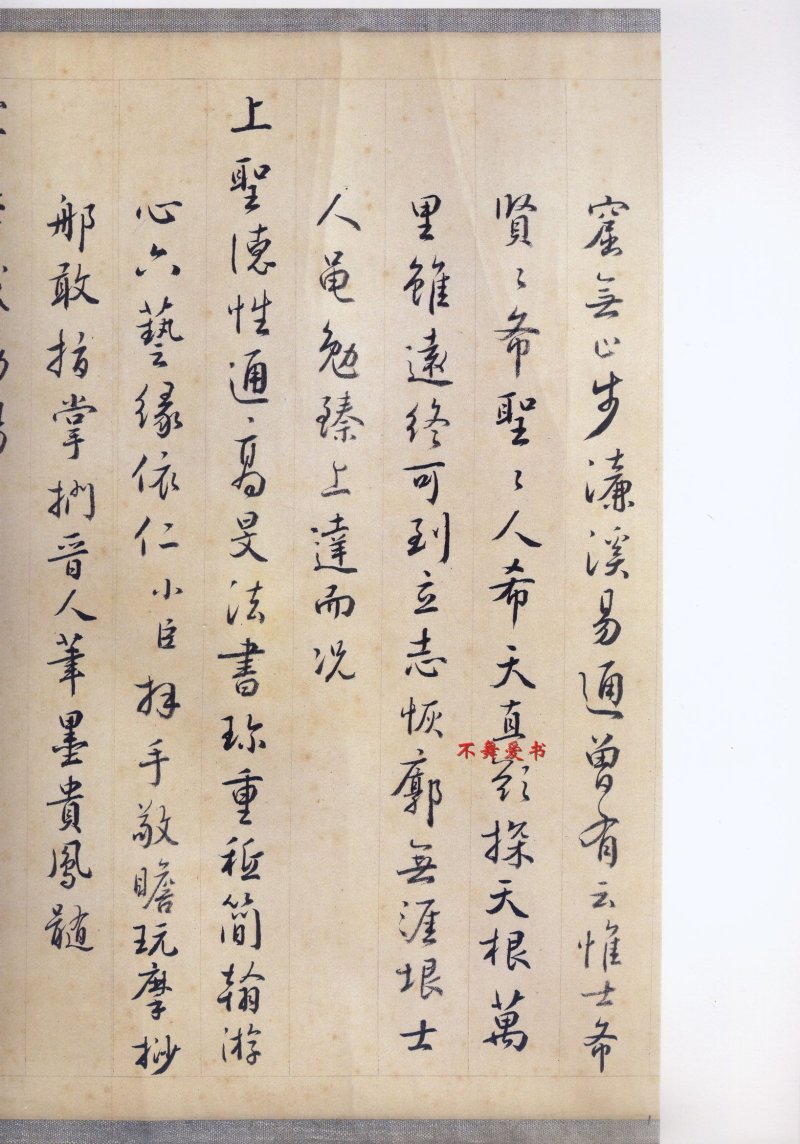 窟無止步濂溪易通曾有云惟士希
賢〻希聖〻人希天直欲探天根萬
里雖遠終可到立志恢廓無涯垠士
人黽勉臻上達而况
上聖德性通高旻法書珍重秘簡翰游
心六藝緣依仁小臣拜手敬瞻玩摩挱
那敢指掌捫晉人筆墨貴鳳髓
不舞爱书